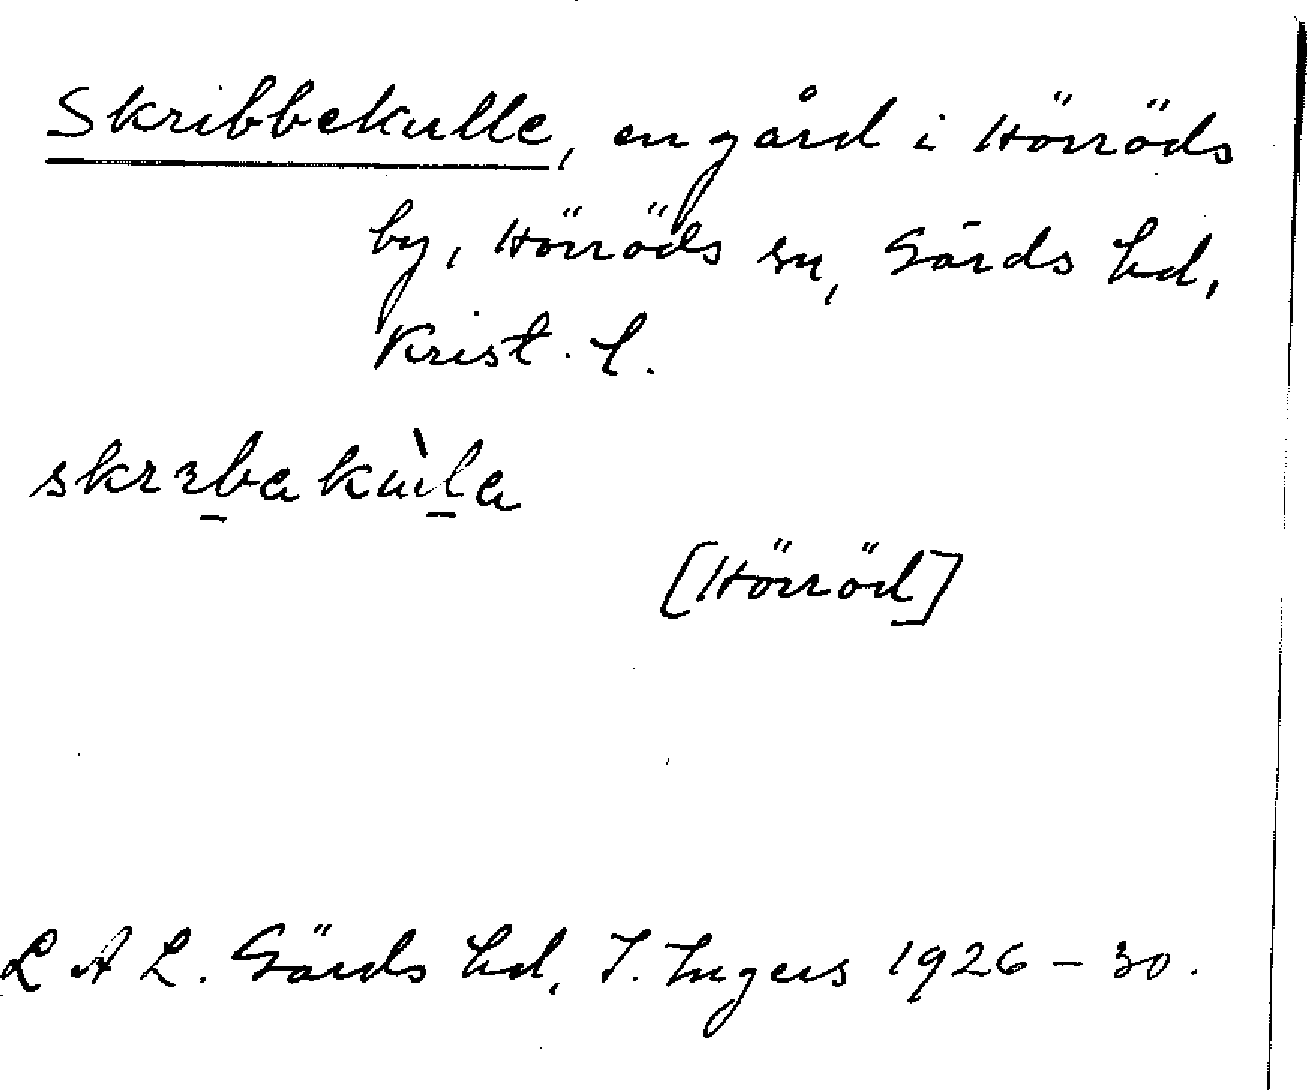 Skribbekulle, en gård i Hörröds
by, Hörröds sn, Gärds hd,
Krist. l.
skrɪb̠akùl̠a
[Hörröd]
L A L. Gärds hd, I. Ingers 1926-30.